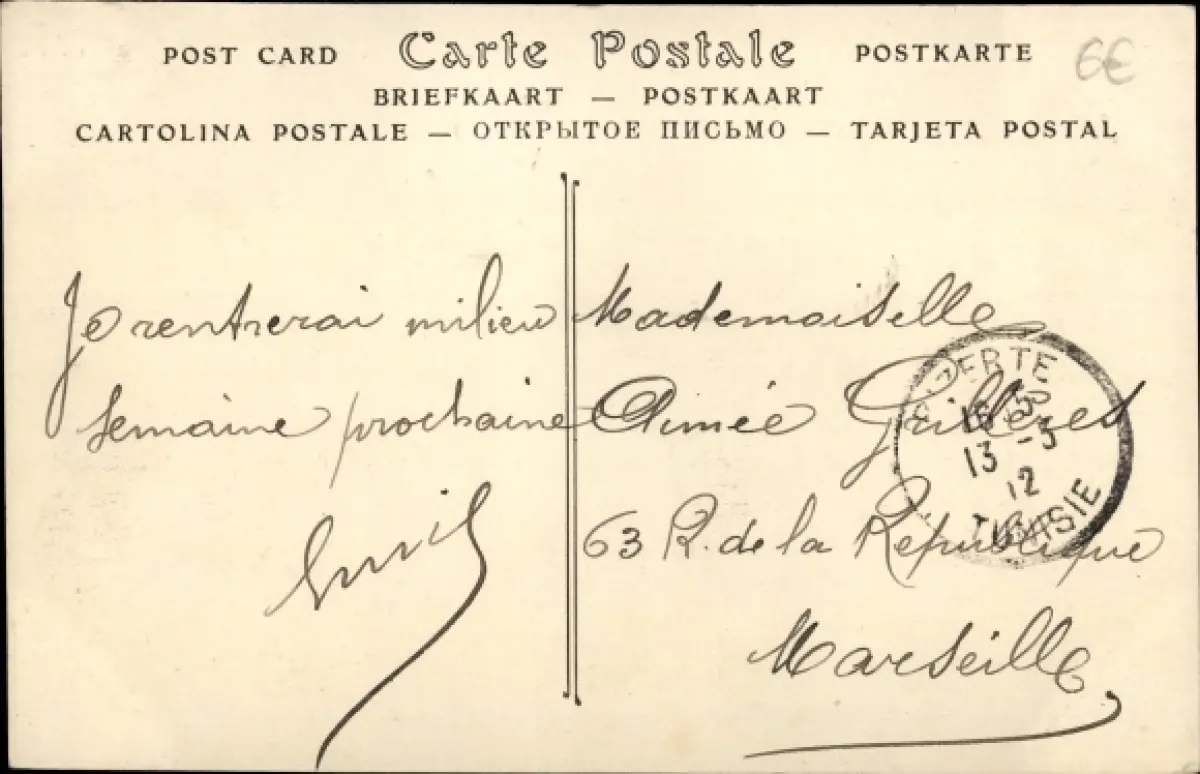 POST CARD Carte Postale POSTKARTE
6€
BRIEFKAART — POSTKAART
CARTOLINA POSTALE — ОТКРЫТОЕ ПИСЬМО — TARJETA POSTAL
Je rentrerai milieu
semaine prochaine
Emil
Mademoiselle
Aimée
63 R. de la République
Marseille
BIZERTE
13 -3
12
TUNISIE